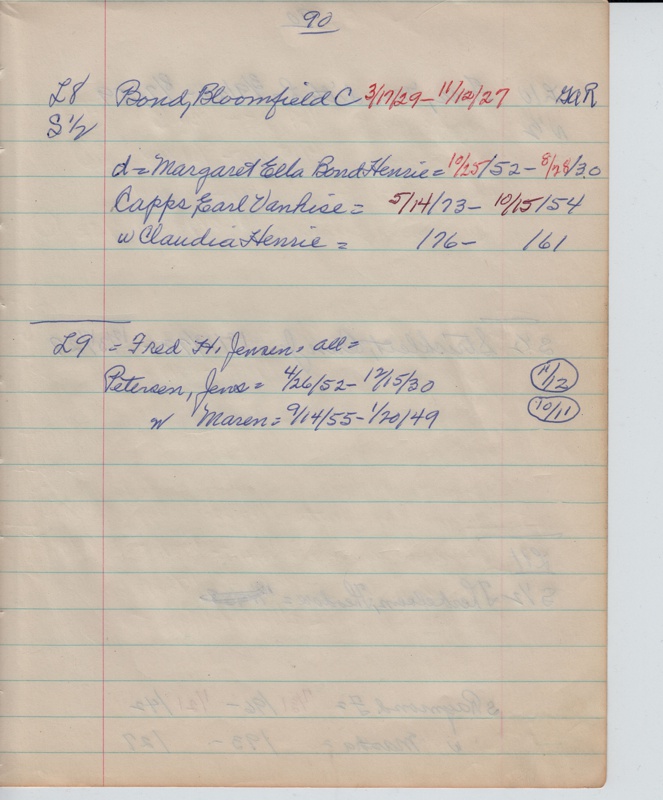 90
L8 Bond, Bloomfield C 3/17/29 - 11/12/27 GAR
S 1/2
d = Margaret Ella Bond Henrie = 10/25/52 - 8/28/30
Capps Earl Vanhise = 5/14/73 - 10/15/54
w Claudia Henrie = 176 - 161
L9 = Fred H. Jensen = all =
Petersen, Jens = 4/26/52 - 12/15/30 11/12
w Maren = 9/14/55 - 1/20/49 10/11